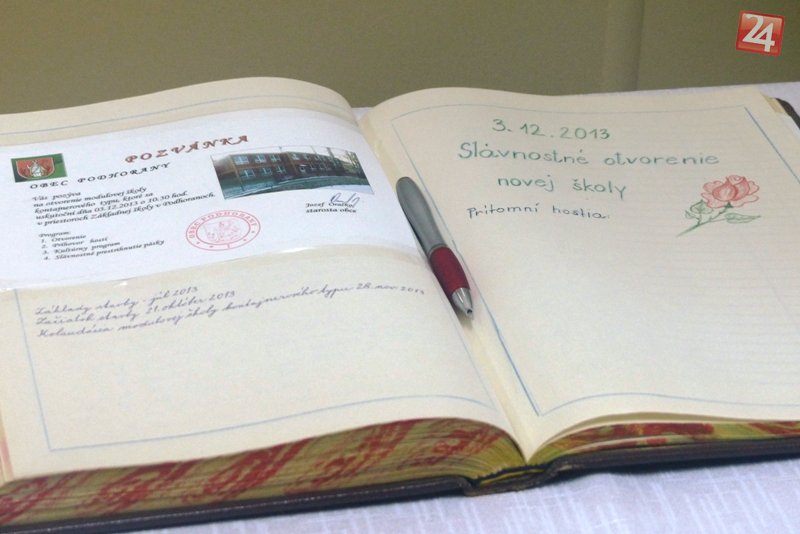 24
POZVÁNKA
OBEC PODHORANY
Vás pozýva
na otvorenie modulovej školy
kontajnerového typu, ktoré sa
uskutoční dňa 03.12.2013 o 10.30 hod.
v priestoroch Základnej školy v Podhoranoch
Program:
1. Otvorenie
2. Príhovor hostí
3. Kultúrny program
4. Slávnostné prestrihnutie pásky
Jozef
starosta obce
OBEC PODHORANY
Základy stavby - júl 2013
Začiatok stavby 21. október 2013
Kolaudácia modulovej školy kontajnerového typu 28. nov. 2013
3.12.2013
Slávnostné otvorenie
novej školy
Prítomní hostia: